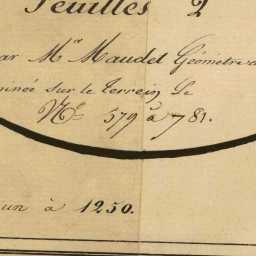 Feuilles 2
ar Mr. Maudet Géomètre d
inée sur le terrein Le
Nos. 579 à 781.
un à 1250.